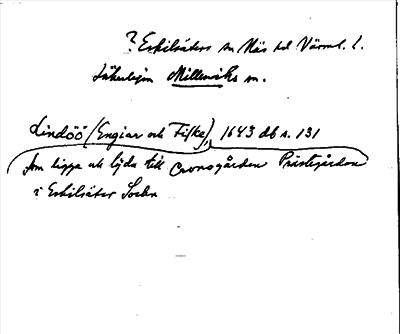 ? Eskilsäters sn Näs hd Värml. l.
Lindöö (Engiar och Fiske), 1643 db s. 131
som ligga och lyda till Cronogården Prästegården
i Eskilsäter Sochn